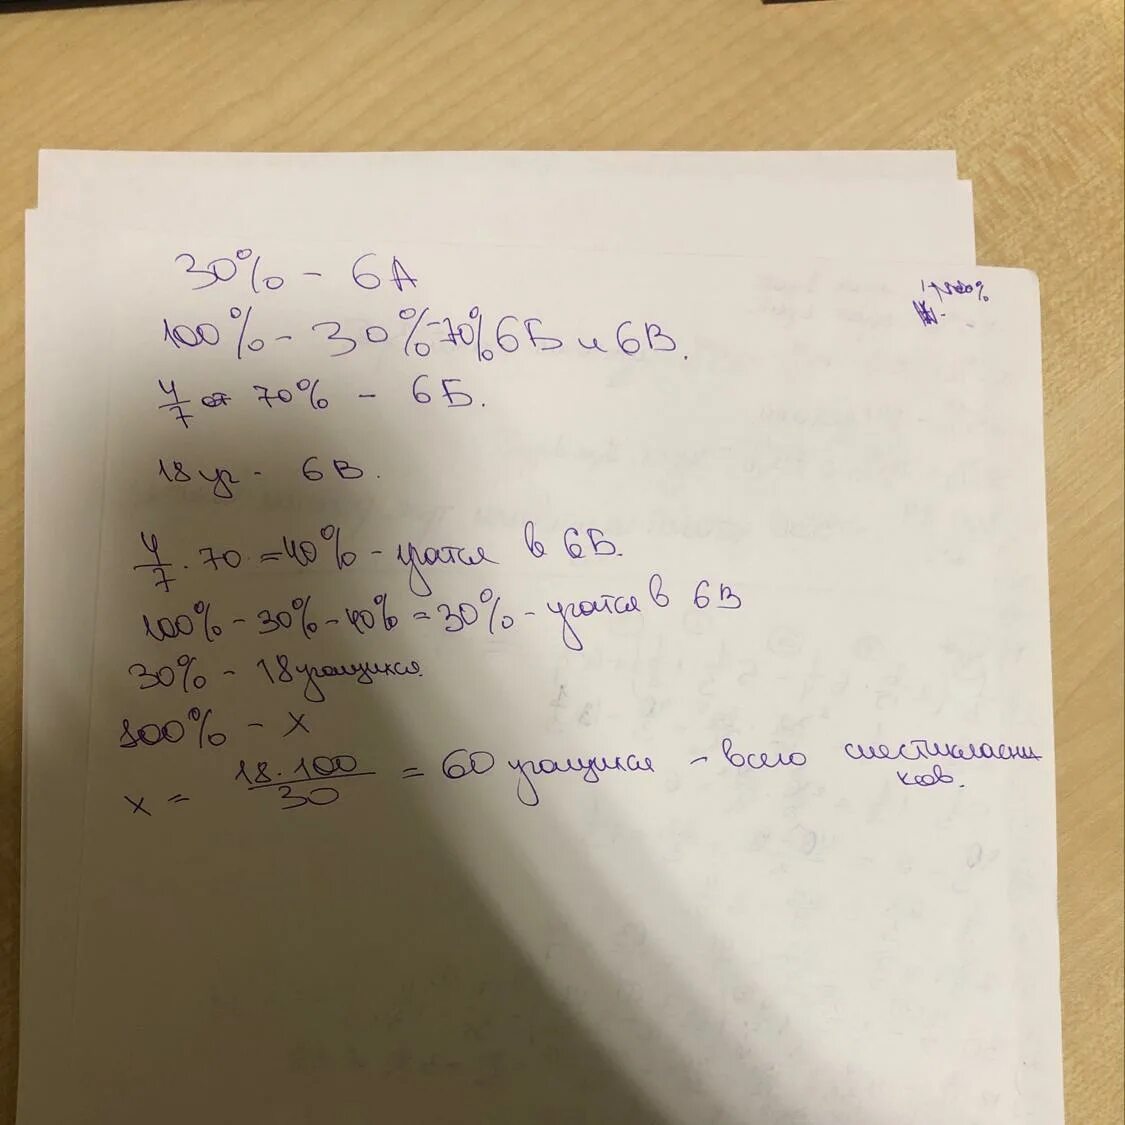 30% - 6А
100% - 30% = 70% 6Б и 6В.
4/7 от 70% - 6Б.
18 уч - 6В.
4/7 · 70 = 40% - учатся в 6Б.
100% - 30% - 40% = 30% - учатся в 6В
30% - 18 учащихся.
100% - х
х = 18·100/30 = 60 учащихся - всего шестикласни
ков.